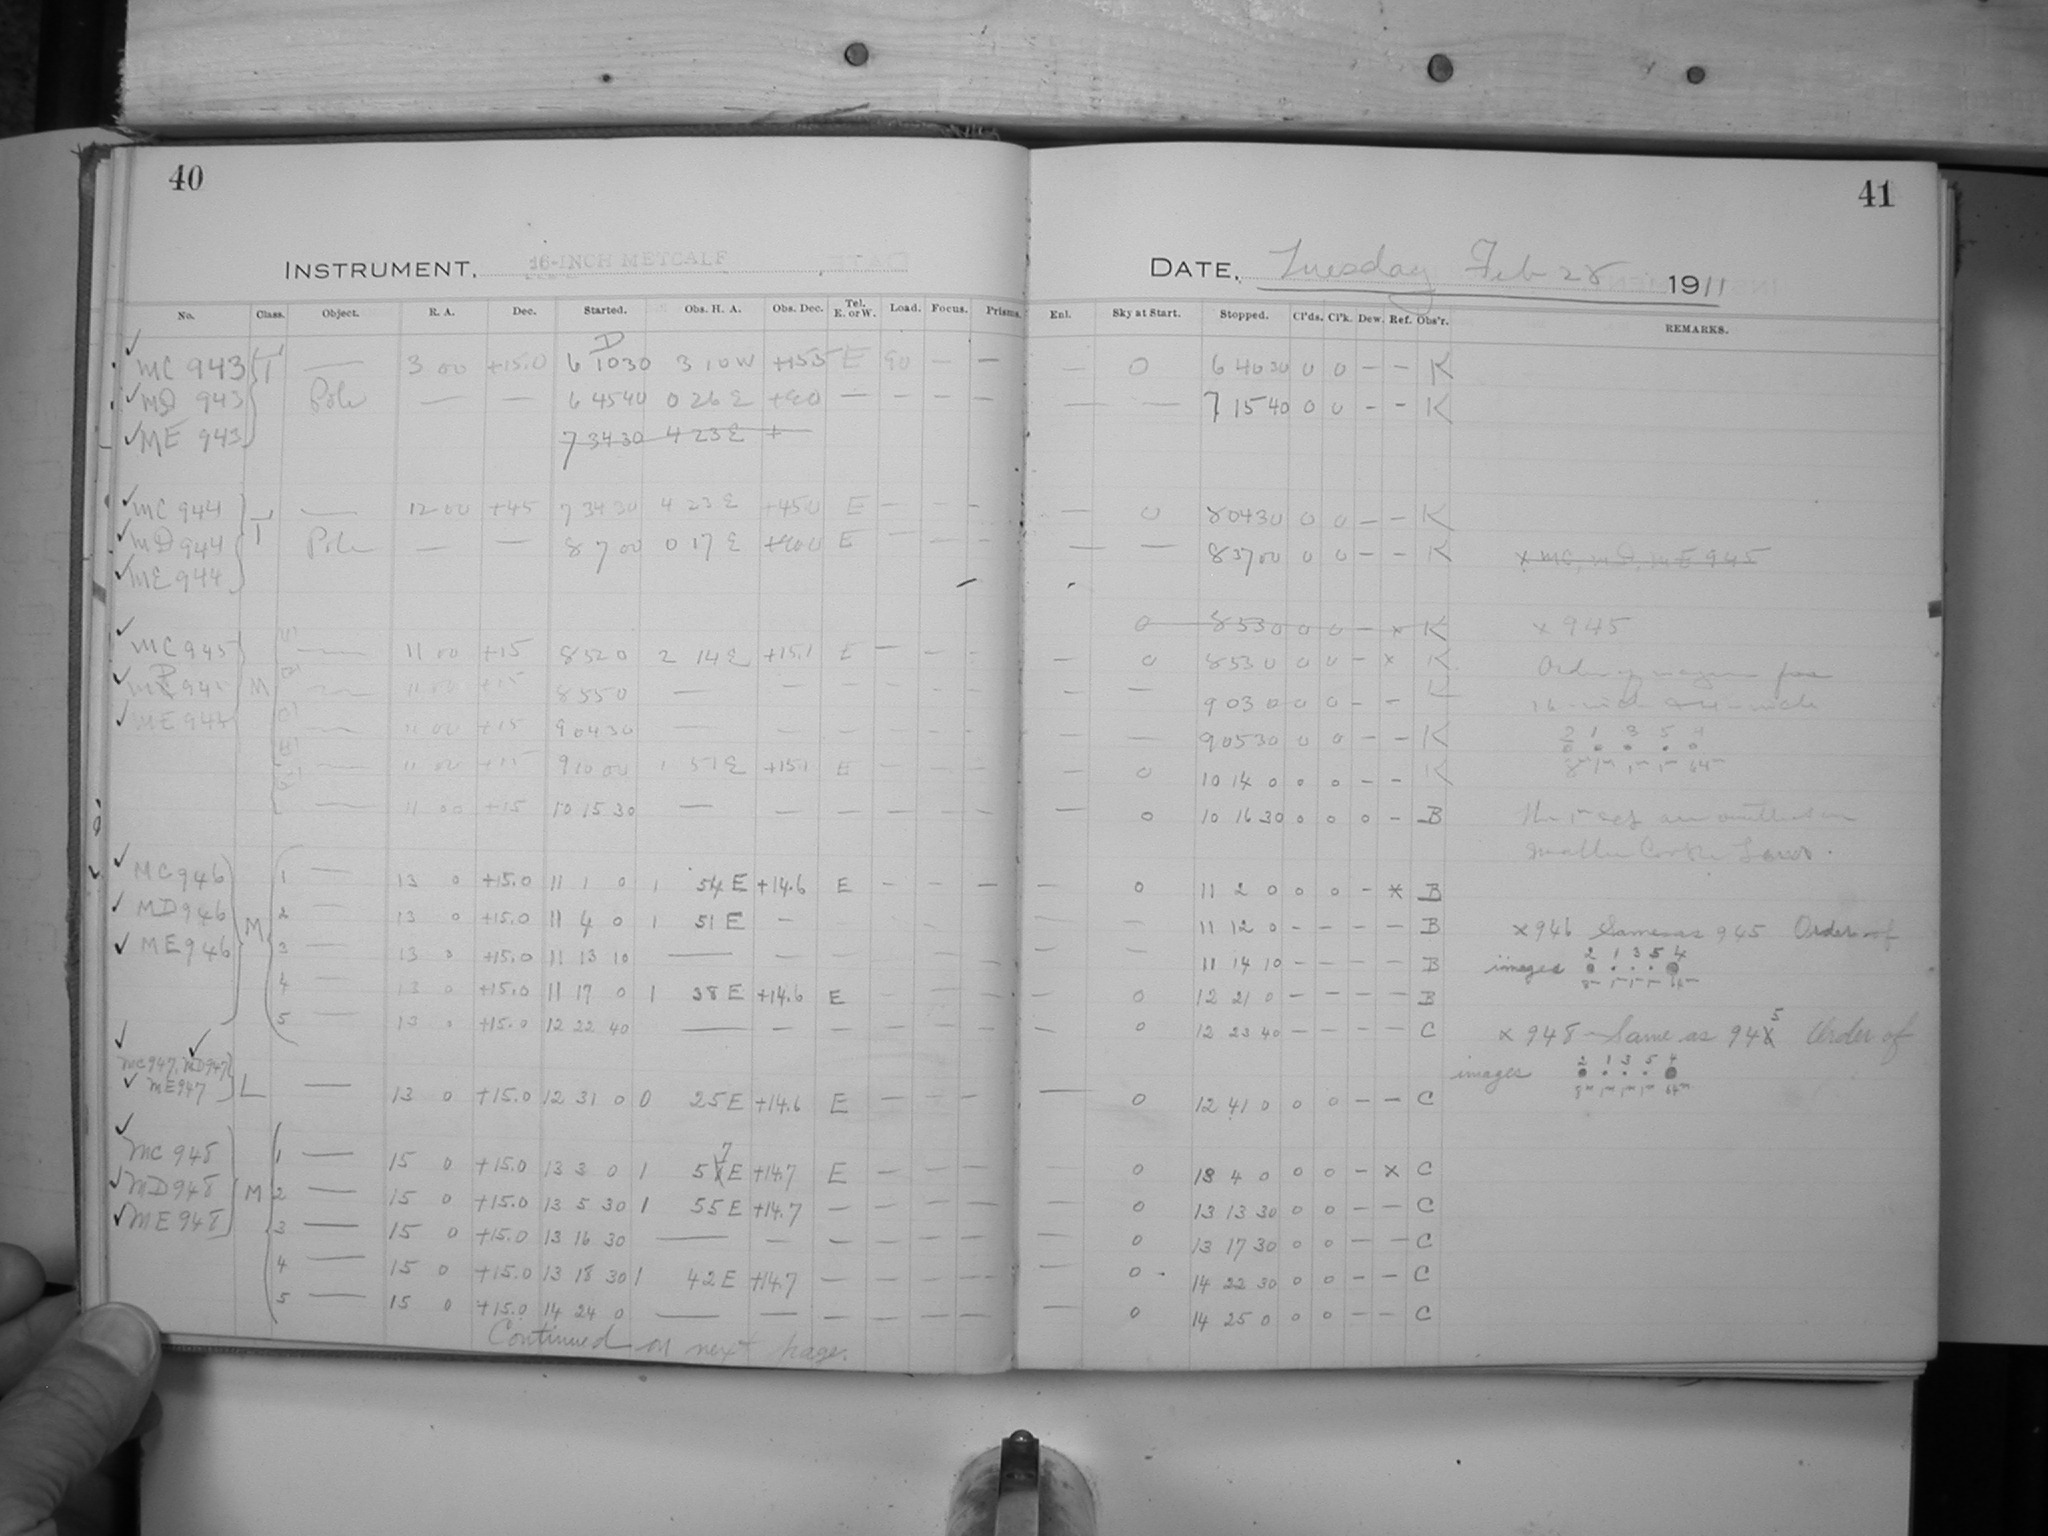 40
INSTRUMENT, 16-INCH METCALF
No. Class. Object. R. A. Dec. Started. Obs. H. A. Obs. Dec. Tel. E. or W. Load. Focus. Prisms.
D
MC 943 T — 3 00 +15.0 6 10 30 3 10 W +15.5 E 90 — —
MD 943 Pole — — 6 45 40 0 26 E +90 — — — —
ME 943 7 34 30 4 23 E +
MC 944 T — 12 00 +45 7 34 30 4 23 E +45.0 E — — —
MD 944 Pole — — 8 7 00 0 17 E +90.0 E — — —
ME 944
MC 945 — 11 00 +15 8 52 0 2 14 E +15.1 E — — —
MD 945 M — 11 00 +15 8 55 0 — — — — — —
ME 945 — 11 00 +15 9 04 30 — — — — — —
— 11 00 +15 9 10 00 1 51 E +15.1 E — — —
— 11 00 +15 10 15 30 — — — — — —
MC 946 1 — 13 0 +15.0 11 1 0 1 54 E +14.6 E — — —
MD 946 M 2 — 13 0 +15.0 11 4 0 1 51 E —
ME 946 3 — 13 0 +15.0 11 13 10 — — — — — —
4 — 13 0 +15.0 11 17 0 1 38 E +14.6 E — — —
5 — 13 0 +15.0 12 22 40 — — — — — —
MC 947, MD 947
ME 947 L — 13 0 +15.0 12 31 0 0 25 E +14.6 E — — —
MC 948 1 — 15 0 +15.0 13 3 0 1 57 E +14.7 E — — —
MD 948 M 2 — 15 0 +15.0 13 5 30 1 55 E +14.7 — — — —
ME 948 3 — 15 0 +15.0 13 16 30 — — — — — —
4 — 15 0 +15.0 13 18 30 1 42 E +14.7 — — — —
5 — 15 0 +15.0 14 24 0 — — — — — —
Continued on next page.
41
DATE, Tuesday Feb 28 1911
Enl. Sky at Start. Stopped. Cl'ds. Cl'k. Dew. Ref. Obs'r. REMARKS.
— 0 6 40 30 0 0 — — K
— — 7 15 40 0 0 — — K
— 0 8 04 30 0 0 — — K
— — 8 37 00 0 0 — — K x MC, MD, ME 945
0 8 53 0 0 0 — x K x 945
— 0 8 53 0 0 0 — x K Order of images for
— — 9 03 0 0 0 — — 16-inch
— — 9 05 30 0 0 — — K 2 1 3 5 4
— 0 10 14 0 0 0 — — K 8m 1m 1m 1m 64m
— 0 10 16 30 0 0 0 — B The 1m are omitted in
smaller Cooke Lens.
— 0 11 2 0 0 0 — * B
— — 11 12 0 — — — — B x 946 Same as 945 Order of
— — 11 14 10 — — — — B images 2 1 3 5 4
— 0 12 21 0 — — — — B 8m 1m 1m 1m 64m
— 0 12 23 40 — — — — C x 948 - Same as 945 Order of
images 2 1 3 5 4
— 0 12 41 0 0 0 — — C 8m 1m 1m 1m 64m
0 13 4 0 0 0 — x C
— 0 13 13 30 0 0 — — C
— 0 13 17 30 0 0 — — C
— 0 14 22 30 0 0 — — C
— 0 14 25 0 0 0 — — C